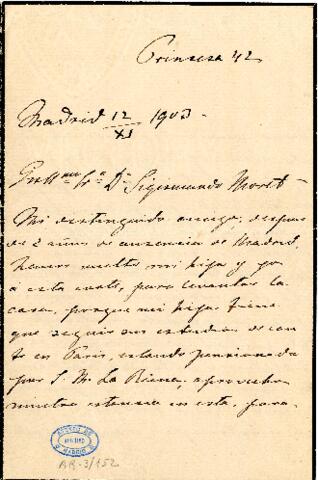 Princesa 42
Madrid 12/XI 1903.
Sr. Dn. Segismundo Moret
Mi distinguido amigo, despues
de 2 años de ausencia de Madrid,
hemos vuelto mi hija y yo
á esta corte, para levantar la
casa, porque mi hija tiene
que seguir sus estudios de can
to en Paris, estando pensionada
por S. M. La Reina, aprovecho
nuestra estancia en esta, para
ATENEO DE
MADRID
AR-3/152